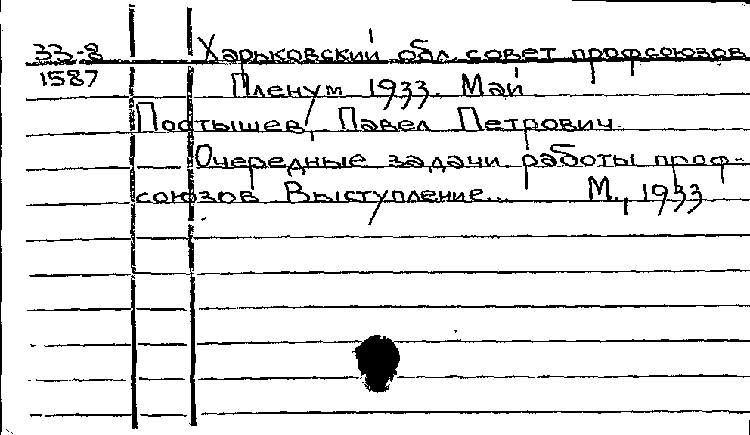 33-8 Харьковский обл. совет профсоюзов
1587 Пленум 1933. Май
Постышев, Павел Петрович
Очередные задачи работы проф-
союзов Выступление... М., 1933